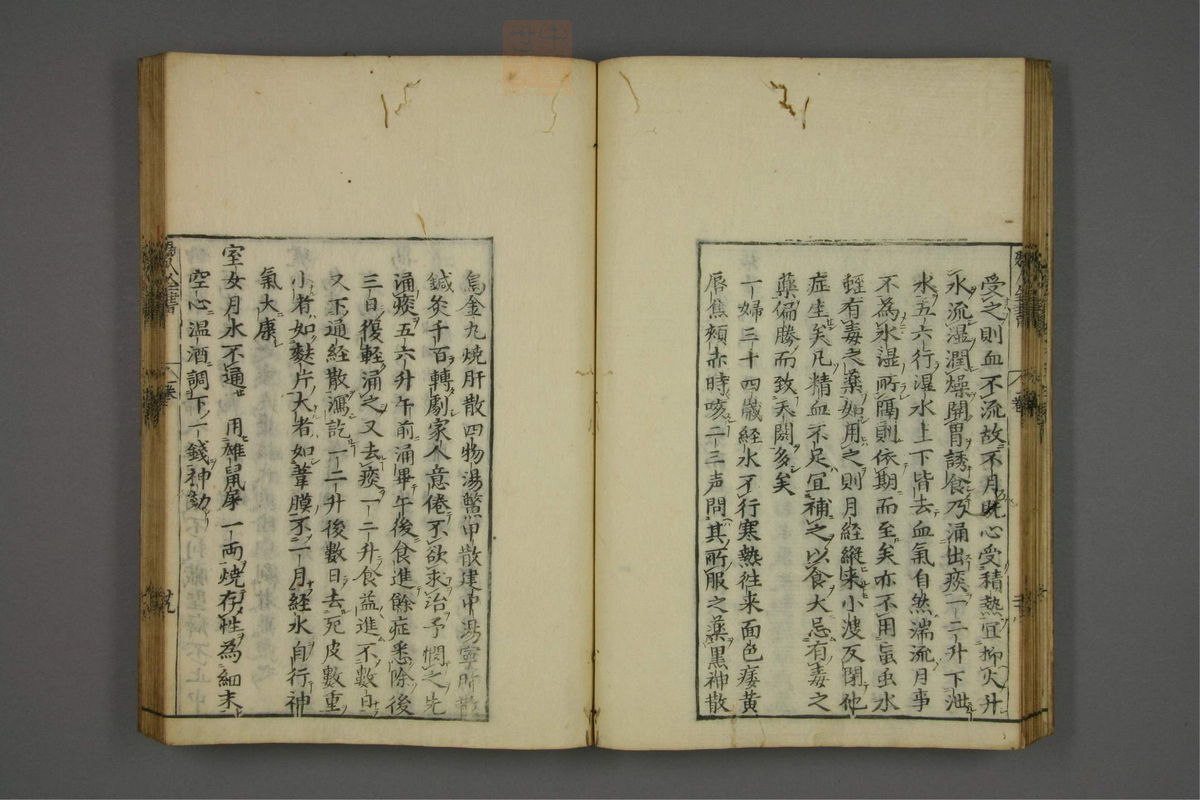 受之則血不流故不月既心受積熱宜抑火升
水流湿潤燥開胃誘食乃涌出痰一二升下泄
水五六行湿水上下皆去血氣自然湍流月事
不為水湿所隔則依期而至矣亦不用䖟虫水
蛭有毒之薬如用之則月経縦来小溲反閉他
症生矣凡精血不足宜補之以食大忌有毒之
薬偏勝而致夭閼多矣
一婦三十四歳経水不行寒熱往来面色痿黄
唇焦頰赤時咳二三声問其所服之薬黒神散
烏金丸焼肝散四物湯鱉甲散建中湯寧肺散
鍼灸千百轉劇家人意倦不欲求治予憫之先
涌痰五六升午前涌畢午後食進餘症悉除後
三日復軽涌之又去痰一二升食益進不数日
又下通経散瀉訖一二升後数日去死皮數重
小者如麩片大者如葦膜不一月経水自行神
氣大康
室女月水不通 用雄鼠屎一両焼存性為細末
空心温酒調下一銭神効